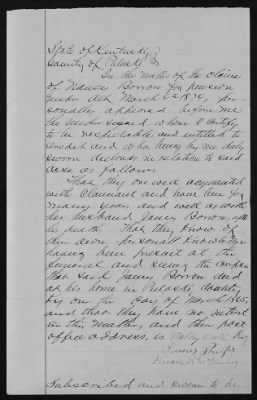 State of Kentucky
County of Pulaski
In the matter of the claim
of Nancy Borron for pension
under Act March
sonally appeared before me
the under signed whom I certify
to be respectable and entitled to
credit and who being by me duly
sworn declares in relation to said
case as follows
That they are well acquainted
with Claimant and have been for
many years and well as with
her husband James Borron, up to
his death. That they know of
their own personal knowledge
having been present at the
funeral and seeing the corpse
that said James Borron died
at his home in Pulaski County
Ky on the day of March
and that they have no interest
in this matter, and their post
office address, is
James
Subscribed and sworn to be